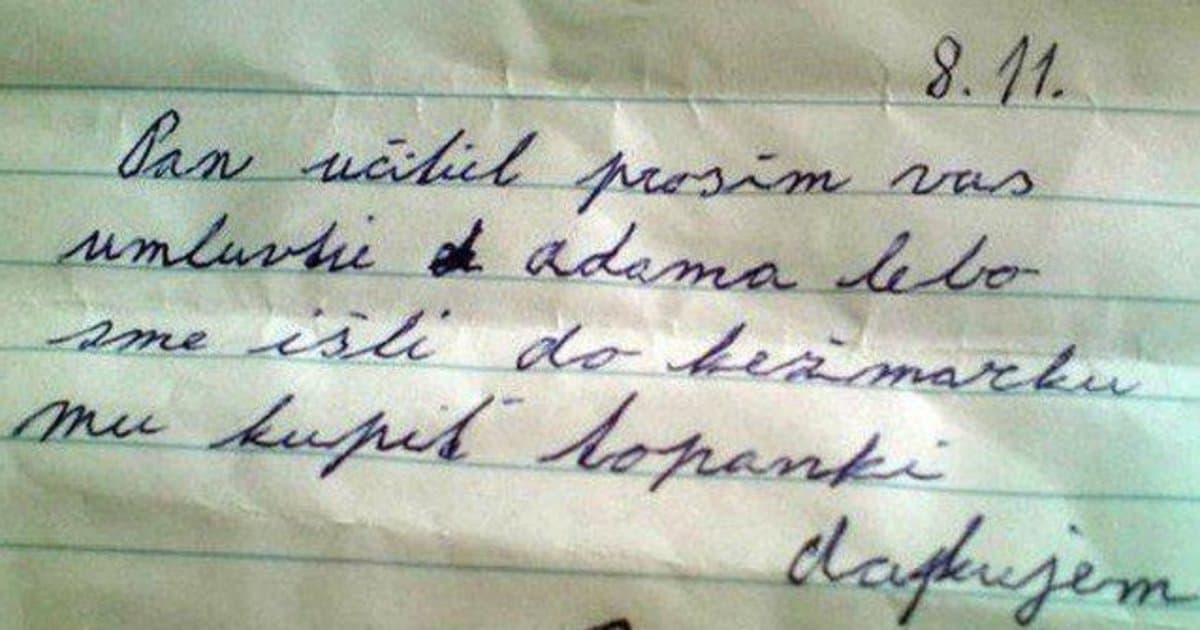 8. 11.
Pan učitiel prosím vas
umluvtie adama lebo
sme išli do kežmarku
mu kupiť topanki
dakujem